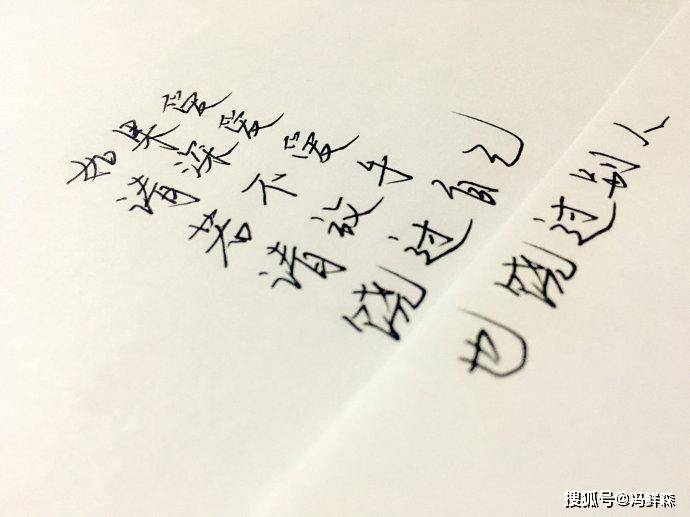 如果爱
请深爱
若不爱
请放手
饶过自己
也饶过别人
搜狐号@冯鲜森